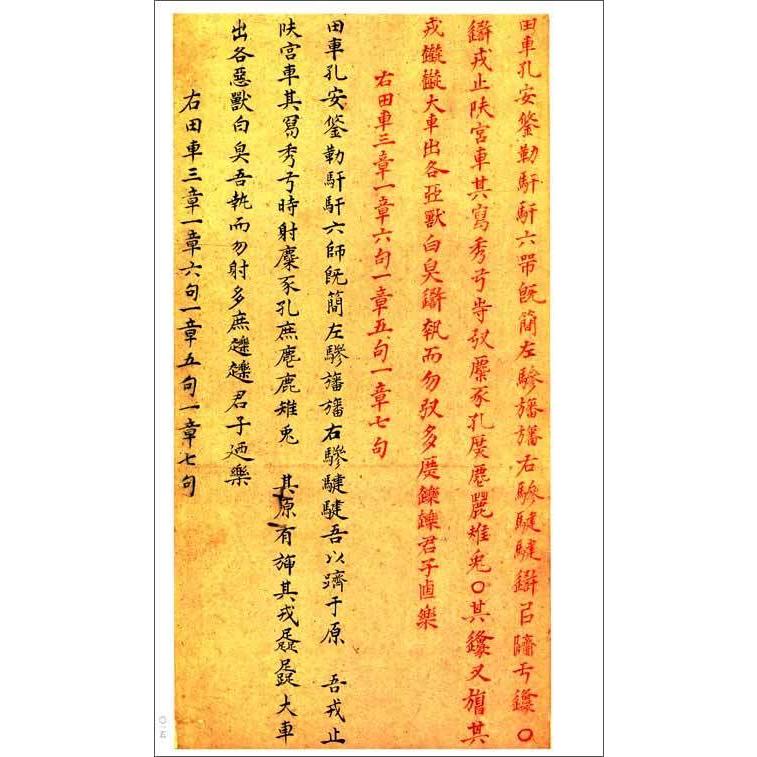 田車孔安鋚勒馯馯六既簡左驂旛旛右驂騝騝㠯隮于〇
戎止陕宮車其寫秀弓麋豕孔麀雉兔〇其又其
戎大車出各亞獸白臭執而勿多君子卣樂
右田車三章一章六句一章五句一章七句
田車孔安鋚勒馯馯六師既簡左驂旛旛右驂騝騝吾以隮于原 吾戎止
陕宮車其寫秀弓時射麋豕孔庶麀鹿雉兔 其原有其戎大車
出各惡獸白臭吾執而勿射多庶君子迺樂
右田車三章一章六句一章五句一章七句